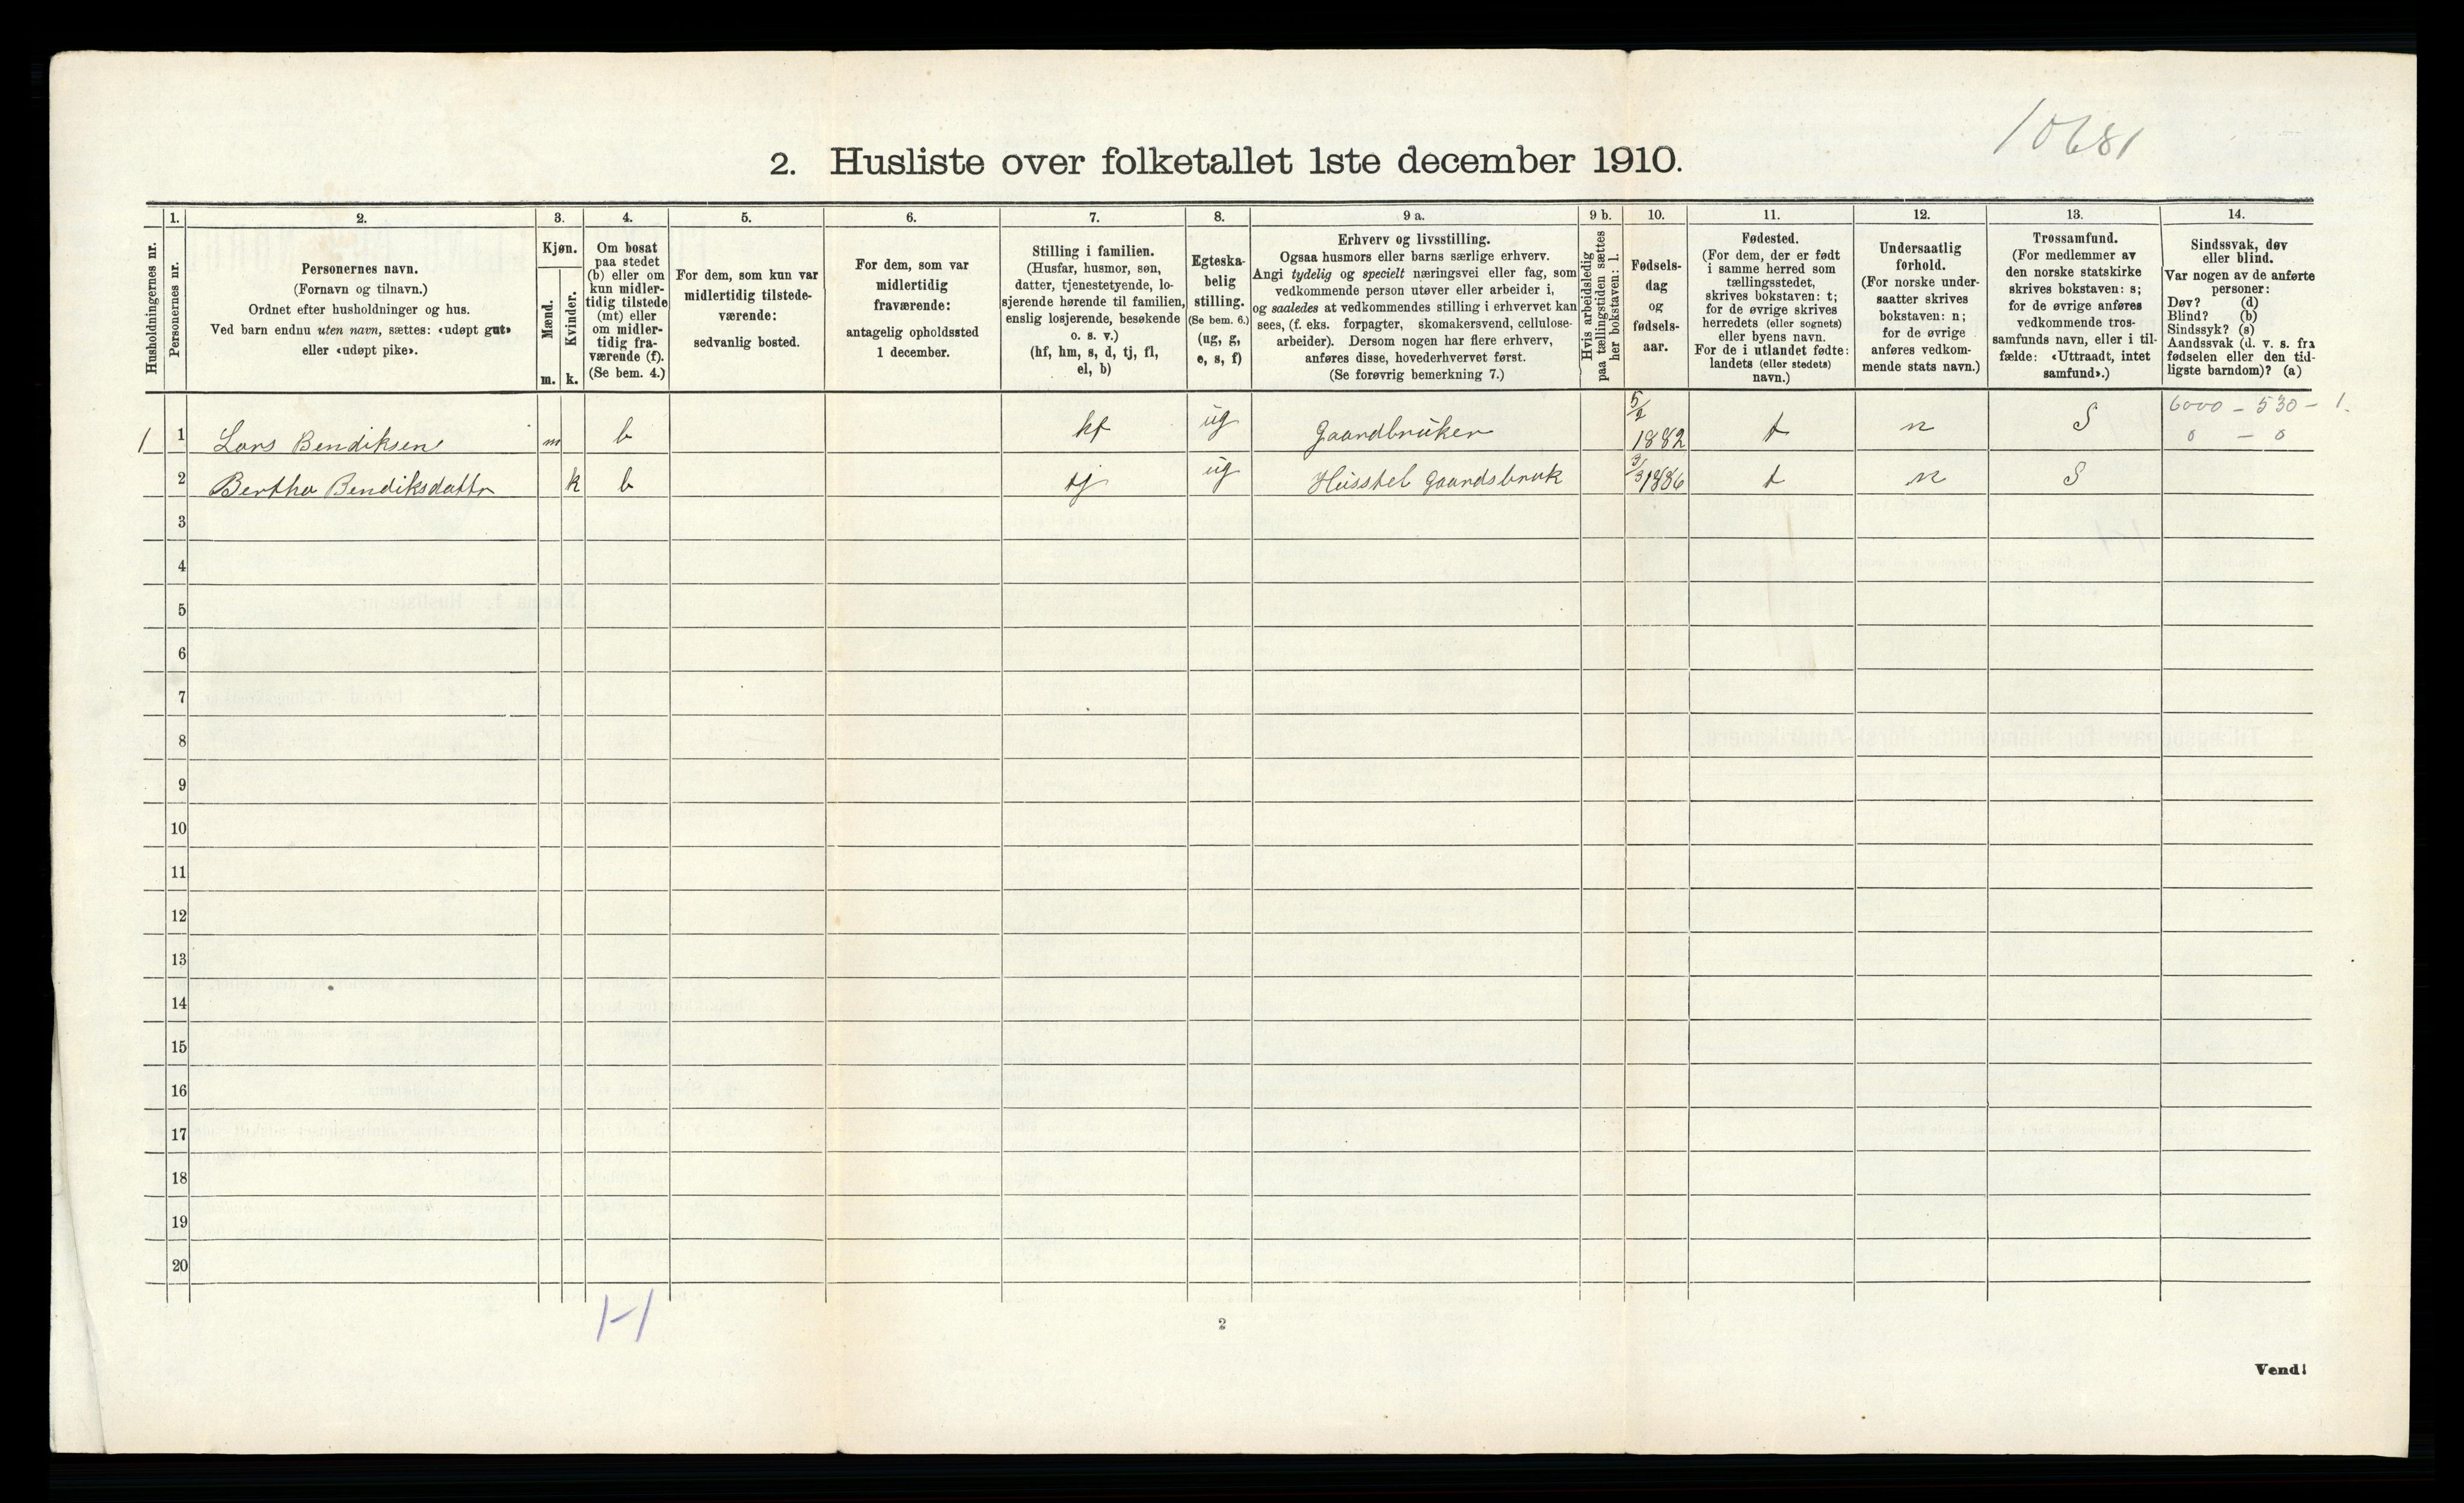 10681
2. Husliste over folketallet 1ste december 1910.
Husholdningernes nr.
1.
Personernes nr.
2.
Personernes navn.
(Fornavn og tilnavn.)
Ordnet efter husholdninger og hus.
Ved barn endnu uten navn, sættes: «udøpt gut»
eller «udøpt pike».
3.
Kjøn.
Mænd.
m.
Kvinder.
k.
4.
Om bosat
paa stedet
(b) eller om
kun midler-
tidig tilstede
(mt) eller
om midler-
tidig fra-
værende (f).
(Se bem. 4.)
5.
For dem, som kun var
midlertidig tilstede-
værende:
sedvanlig bosted.
6.
For dem, som var
midlertidig
fraværende:
antagelig opholdssted
1 december.
7.
Stilling i familien.
(Husfar, husmor, søn,
datter, tjenestetyende, lo-
sjerende hørende til familien,
enslig losjerende, besøkende
o. s. v.)
(hf, hm, s, d, tj, fl,
el, b)
8.
Egteska-
belig
stilling.
(Se bem. 6.)
(ug, g,
e, s, f)
9 a.
Erhverv og livsstilling.
Ogsaa husmors eller barns særlige erhverv.
Angi tydelig og specielt næringsvei eller fag, som
vedkommende person utøver eller arbeider i,
og saaledes at vedkommendes stilling i erhvervet kan
sees, (f. eks. forpagter, skomakersvend, cellulose-
arbeider). Dersom nogen har flere erhverv,
anføres disse, hovederhvervet først.
(Se forøvrig bemerkning 7.)
9 b.
Hvis arbeidsledig
paa tællingstiden sættes
her bokstaven: l.
10.
Fødsels-
dag
og
fødsels-
aar.
11.
Fødested.
(For dem, der er født
i samme herred som
tællingsstedet,
skrives bokstaven: t;
for de øvrige skrives
herredets (eller sognets)
eller byens navn.
For de i utlandet fødte:
landets (eller stedets)
navn.)
12.
Undersaatlig
forhold.
(For norske under-
saatter skrives
bokstaven: n;
for de øvrige
anføres vedkom-
mende stats navn.)
13.
Trossamfund.
(For medlemmer av
den norske statskirke
skrives bokstaven: s;
for de øvrige anføres
vedkommende tros-
samfunds navn, eller i til-
fælde: «Uttraadt, intet
samfund».)
14.
Sindssvak, døv
eller blind.
Var nogen av de anførte
personer:
Døv? (d)
Blind? (b)
Sindssyk? (s)
Aandssvak (d. v. s. fra
fødselen eller den tid-
ligste barndom)? (a)
6000 - 530 - 1.
0 - 0
1 1 Lars Bendiksen m b hf ug Gaardbruker 5/2 1882 t n S
2 Bertha Bendiksdattr k b tj ug Husstel Gaardsbruk 3/3 1886 t n S
3
4
5
6
7
8
9
10
11
12
13
14
15
16
17
18
19
20
1-1
2
Vend!